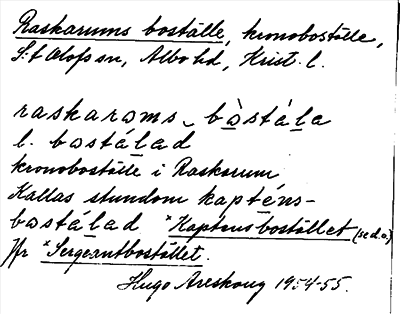 Raskarums boställe, kronoboställe,
S:t Olofs sn, Albo hd, Krist. l.
raskaroms bòstála
l. bostálad
kronoboställe i Raskarum
Kallas stundom kapténs-
bostálad *Kaptensbostället (se d.o.)
Jfr *Sergeantbostället.
Hugo Areskoug 1954-55.